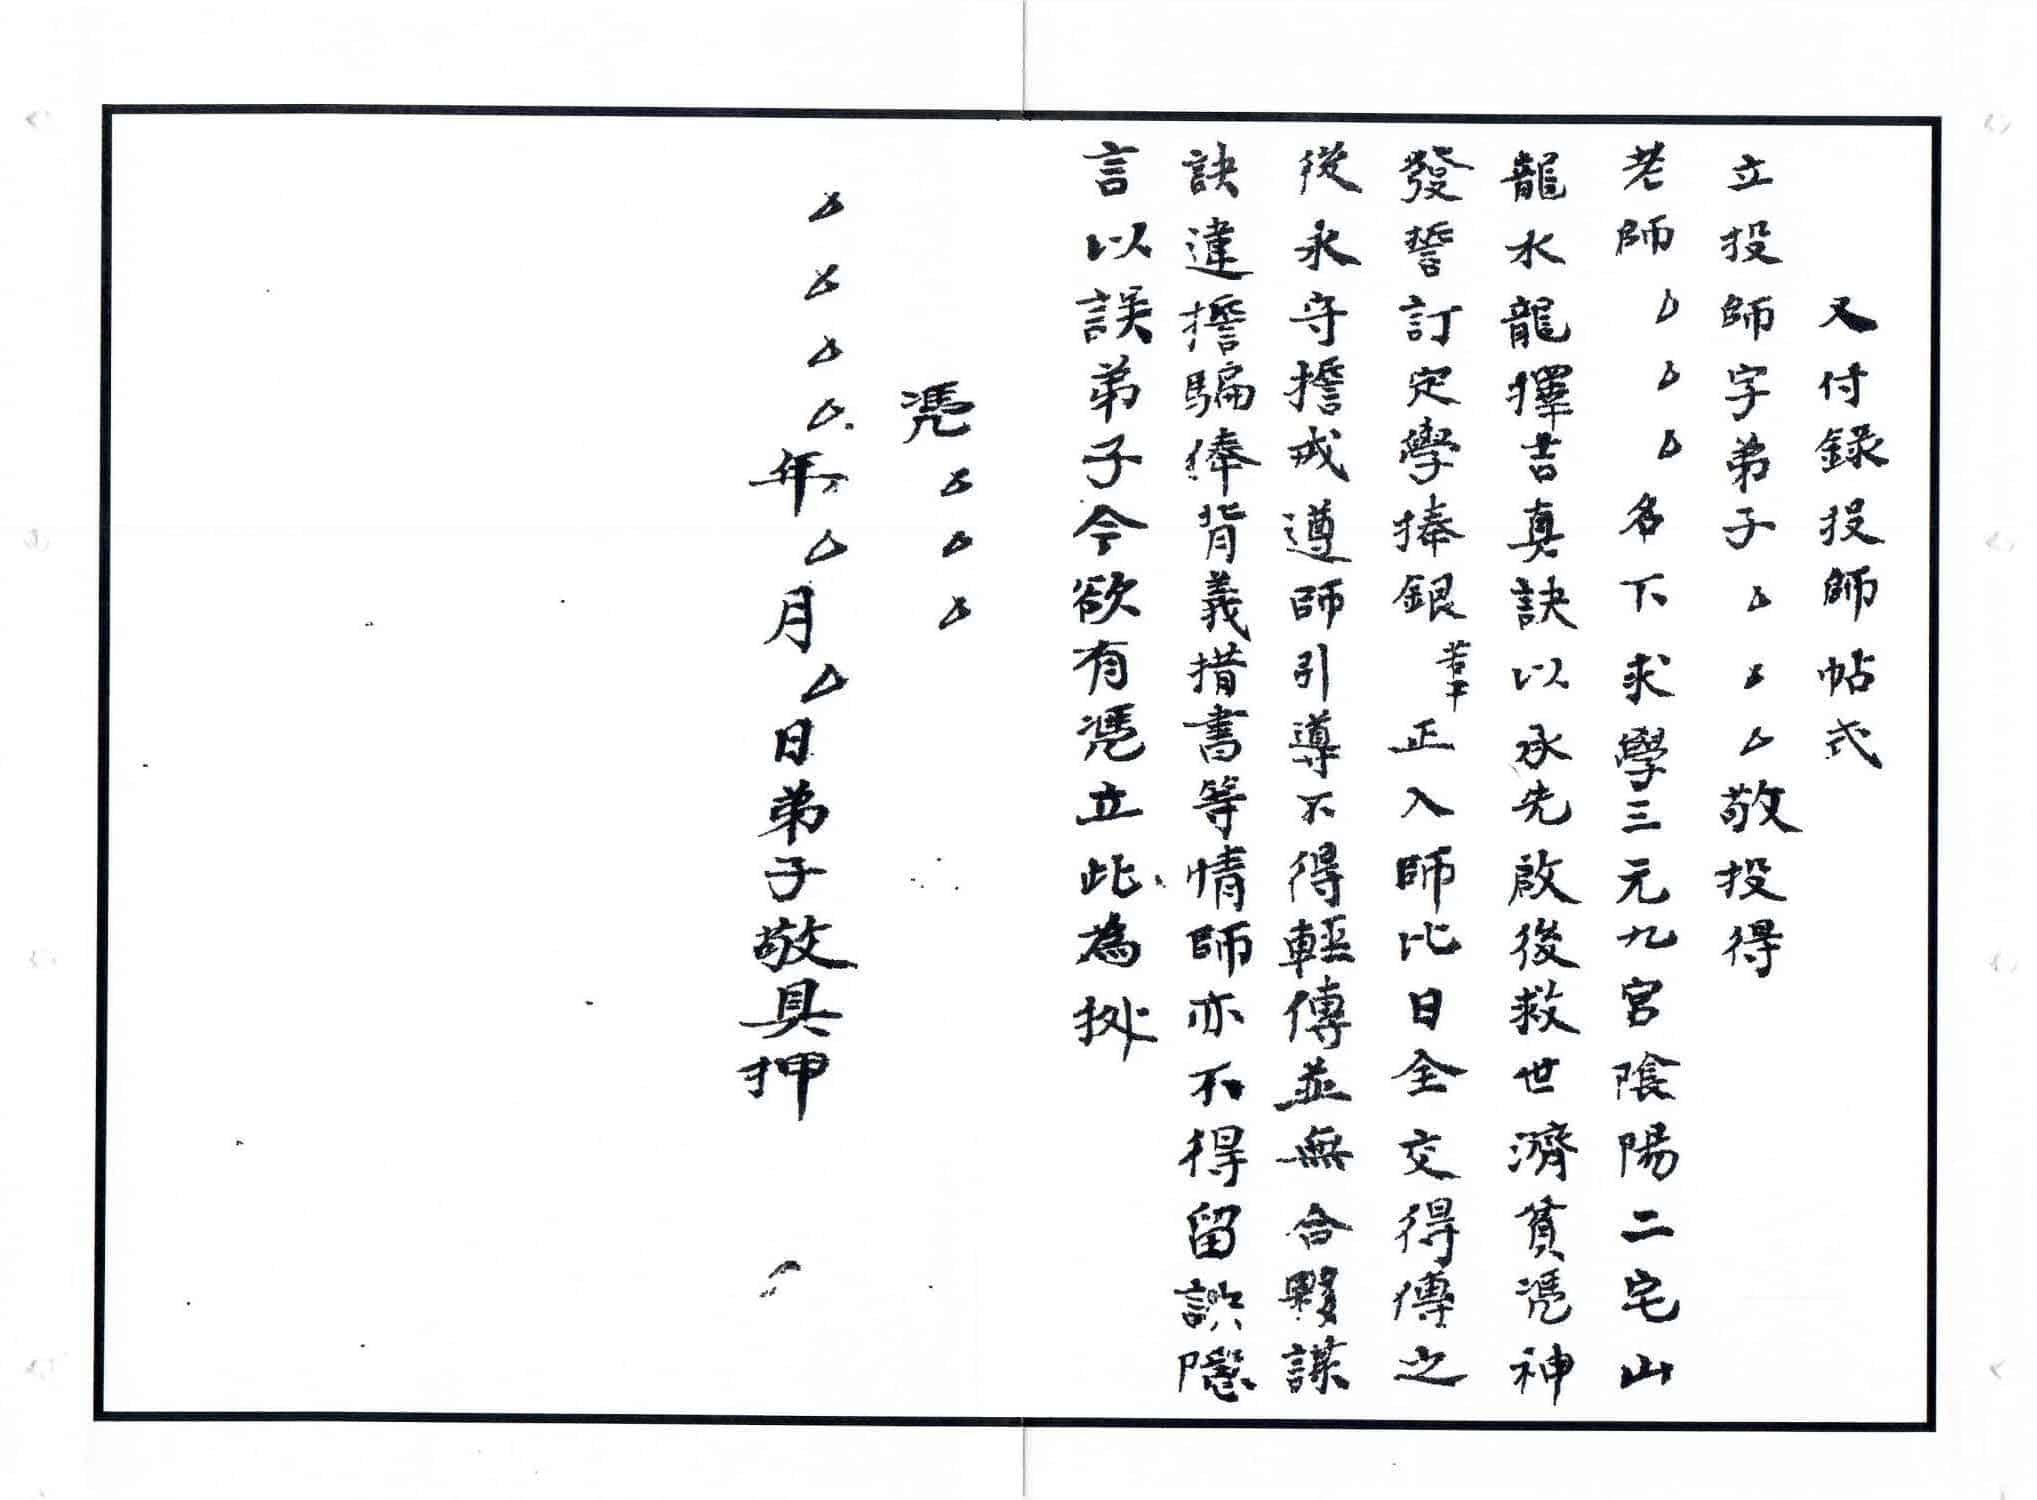 又付錄投師帖式
立投師字弟子△△△敬投得
老師△△△名下求學三元九宮陰陽二宅山
龍水龍擇吉真訣以承先啟後救世濟貧憑神
發誓訂定學捧銀若干正入師比日全交得傳之
後永守擔戒遵師引導不得輕傳並無合夥謀
訣違擔騙俸背義措書等情師亦不得留訣隱
言以誤弟子今欲有憑立此為拠
憑△△△
△△△△年△月△日弟子敬具押